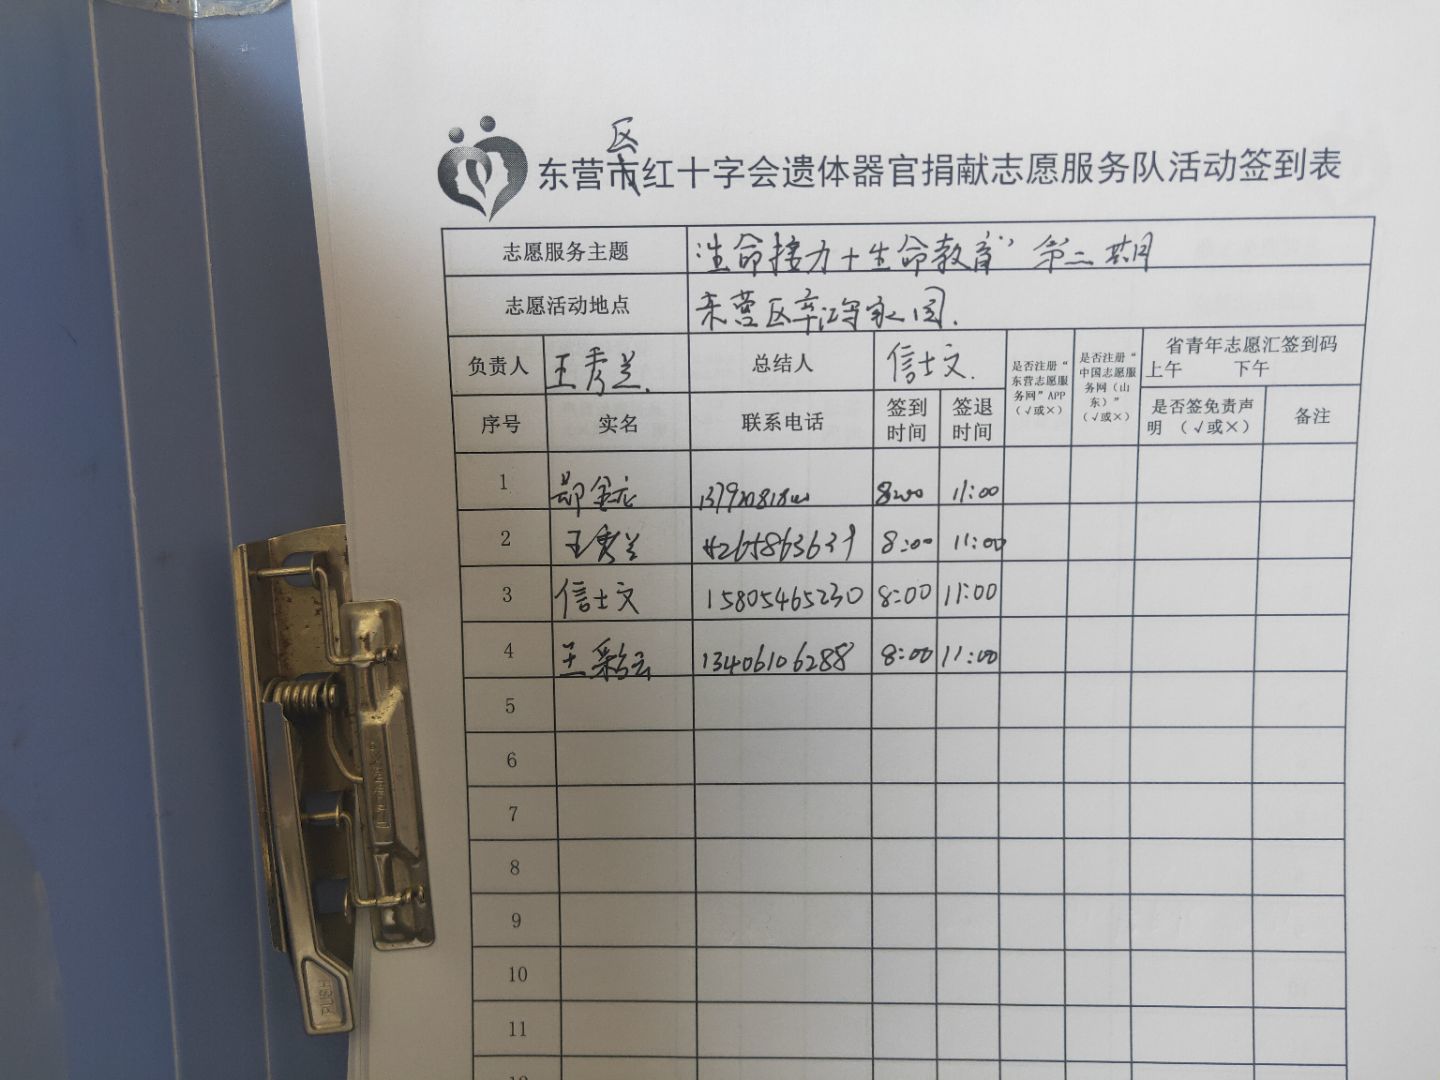 区
东营市红十字会遗体器官捐献志愿服务队活动签到表
志愿服务主题 “生命接力+生命教育”第二期
志愿活动地点 东营区辛鸿家园.
负责人 王秀兰. 总结人 信士文. 是否注册“东营志愿服务网”APP（√或×） 是否注册“中国志愿服务网（山东）”（√或×） 省青年志愿汇签到码 上午 下午
序号 实名 联系电话 签到时间 签退时间 是否签免责声明 （√或×） 备注
1 8:00 11:00
2 王秀兰 8:00 11:00
3 信士文 15805465230 8:00 11:00
4 王彩云 13406106288 8:00 11:00
5
6
7
8
9
10
11
PUSH